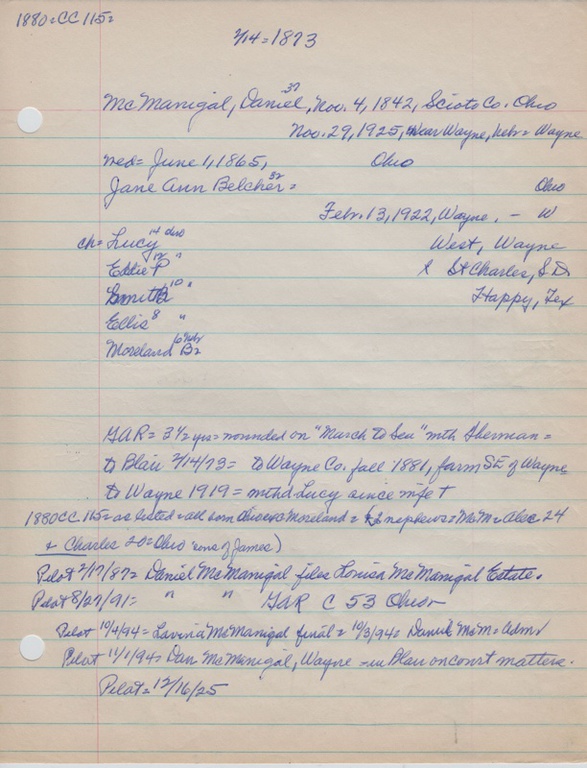 1880=CC115=
2/14=1873
McManigal, Daniel, 37 Nov. 4, 1842, Scioto Co. Ohio
Nov. 29, 1925, near Wayne, Nebr = Wayne
med= June 1, 1865, Ohio
Jane Ann Belcher 32 = Ohio
Febr. 13, 1922, Wayne, - W
ch= Lucy 14 West, Wayne
Eddie P 12 " & St Charles, S.D.
Smith B 10 " Happy, Tex
Ellis 8 "
Moreland B2
GAR = 3½ yrs = wounded on "March to Sea" with Sherman =
to Blair 2/14/73 = to Wayne Co. fall 1881, farm SE of Wayne
to Wayne 1919 = with d Lucy since wife †
1880CC 115 = as listed = all born Ohio Moreland = 2 nephews = McM = Alec 24
+ Charles 20 = Ohio sons of James)
Pilot 2/17/87 = Daniel McManigal files Louisa McManigal Estate.
Pilot 8/27/91 = " " GAR C 53 Ohio
Pilot 10/4/94 = Lavina McManigal final = 10/3/94 = Daniel McM = Admr
Pilot 11/1/94 = Dan McManigal, Wayne - in Blair on court matters.
Pilot = 12/16/25